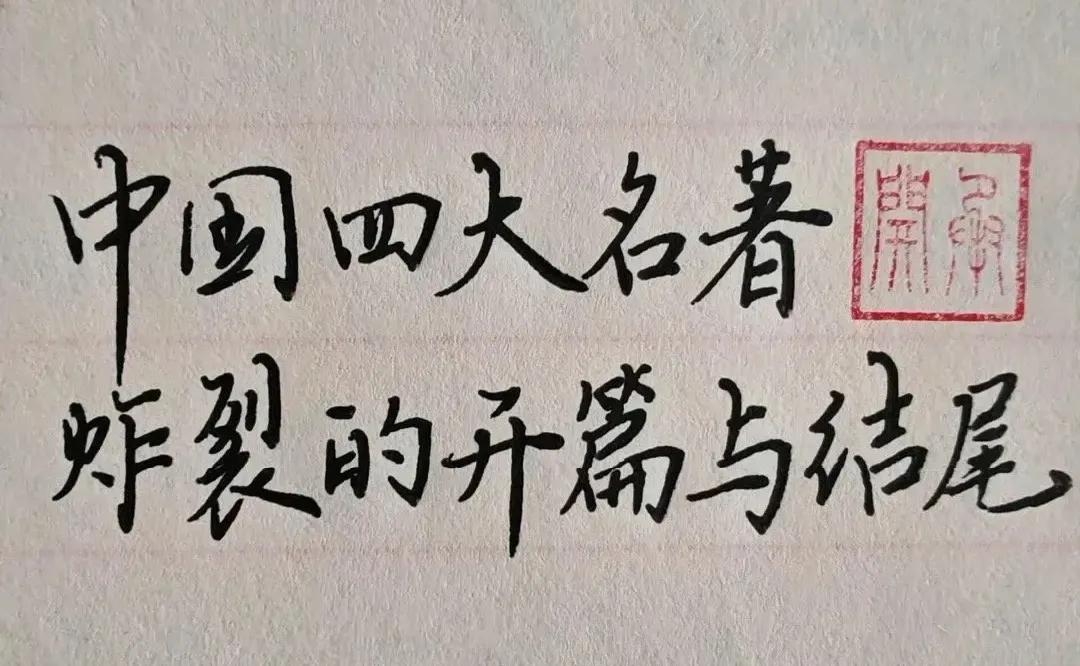 中国四大名著
炸裂的开篇与结尾